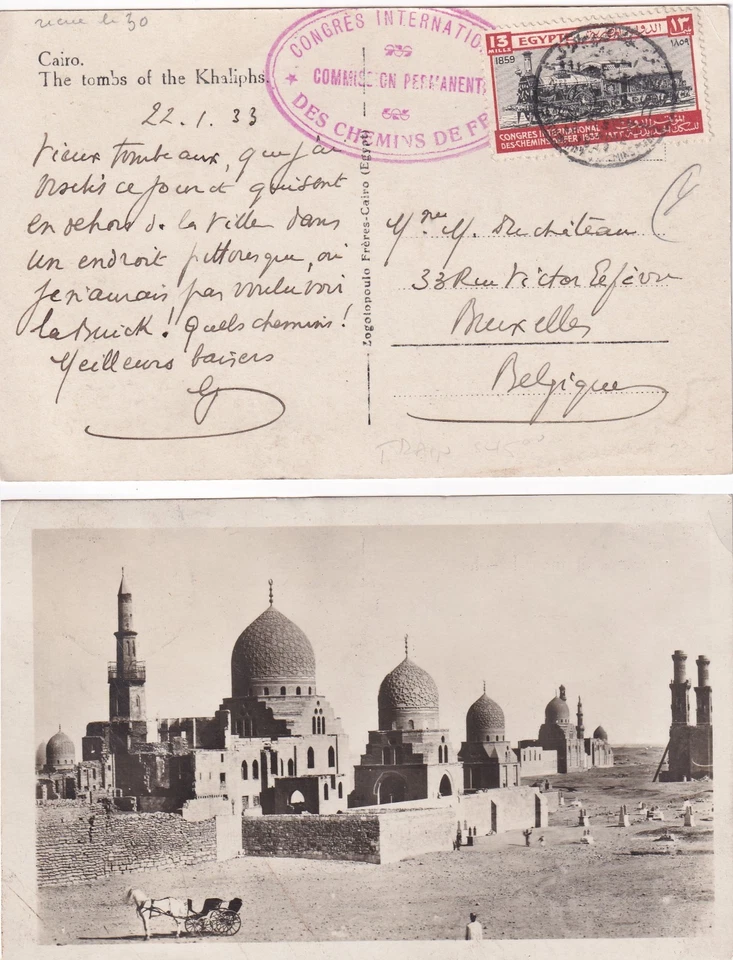 Cairo.
The tombs of the Khaliphs.
22.1.33
Vieux tombeaux, que j'ai
visités ce jour et qui sont
en dehors de la ville dans
un endroit pittoresque, où
je n'aurais pas voulu voir
la Buick! Quels chemins!
Meilleurs baisers
Zogolopoulo Frères-Cairo (Egypt)
CONGRÈS INTERNATIO
COMMISSION PERMANENT
DES CHEMINS DE FE
13
MILLS
EGYPT
١٣
1859
١٨٥٩
CONGRES INTERNATIONAL
DES CHEMINS DE FER 1933
Mme M. Duchâteau
33 Rue Victor Lefèvre
Bruxelles
Belgique